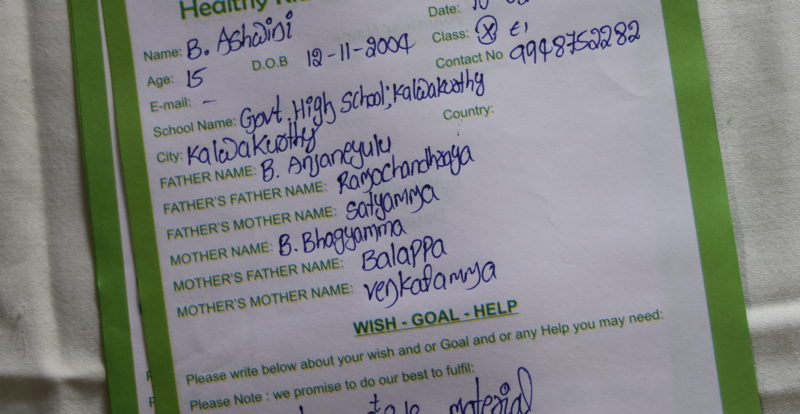 Healthy
Date: 10
Name: B. Ashwini
Age: 15 D.O.B 12-11-2004 Class: X E1
E-mail: - Contact No 9948752282
School Name: Govt. High School, Kalwakurthy
City: Kalwakurthy Country:
FATHER NAME: B. Anjaneyulu
FATHER'S FATHER NAME: Ramachandraya
FATHER'S MOTHER NAME: Satyamma
MOTHER NAME: B. Bhagyamma
MOTHER'S FATHER NAME: Balappa
MOTHER'S MOTHER NAME: Venkatamma
WISH - GOAL - HELP
Please write below about your wish and or Goal and or any Help you may need:
Please Note : we promise to do our best to fulfil:
material